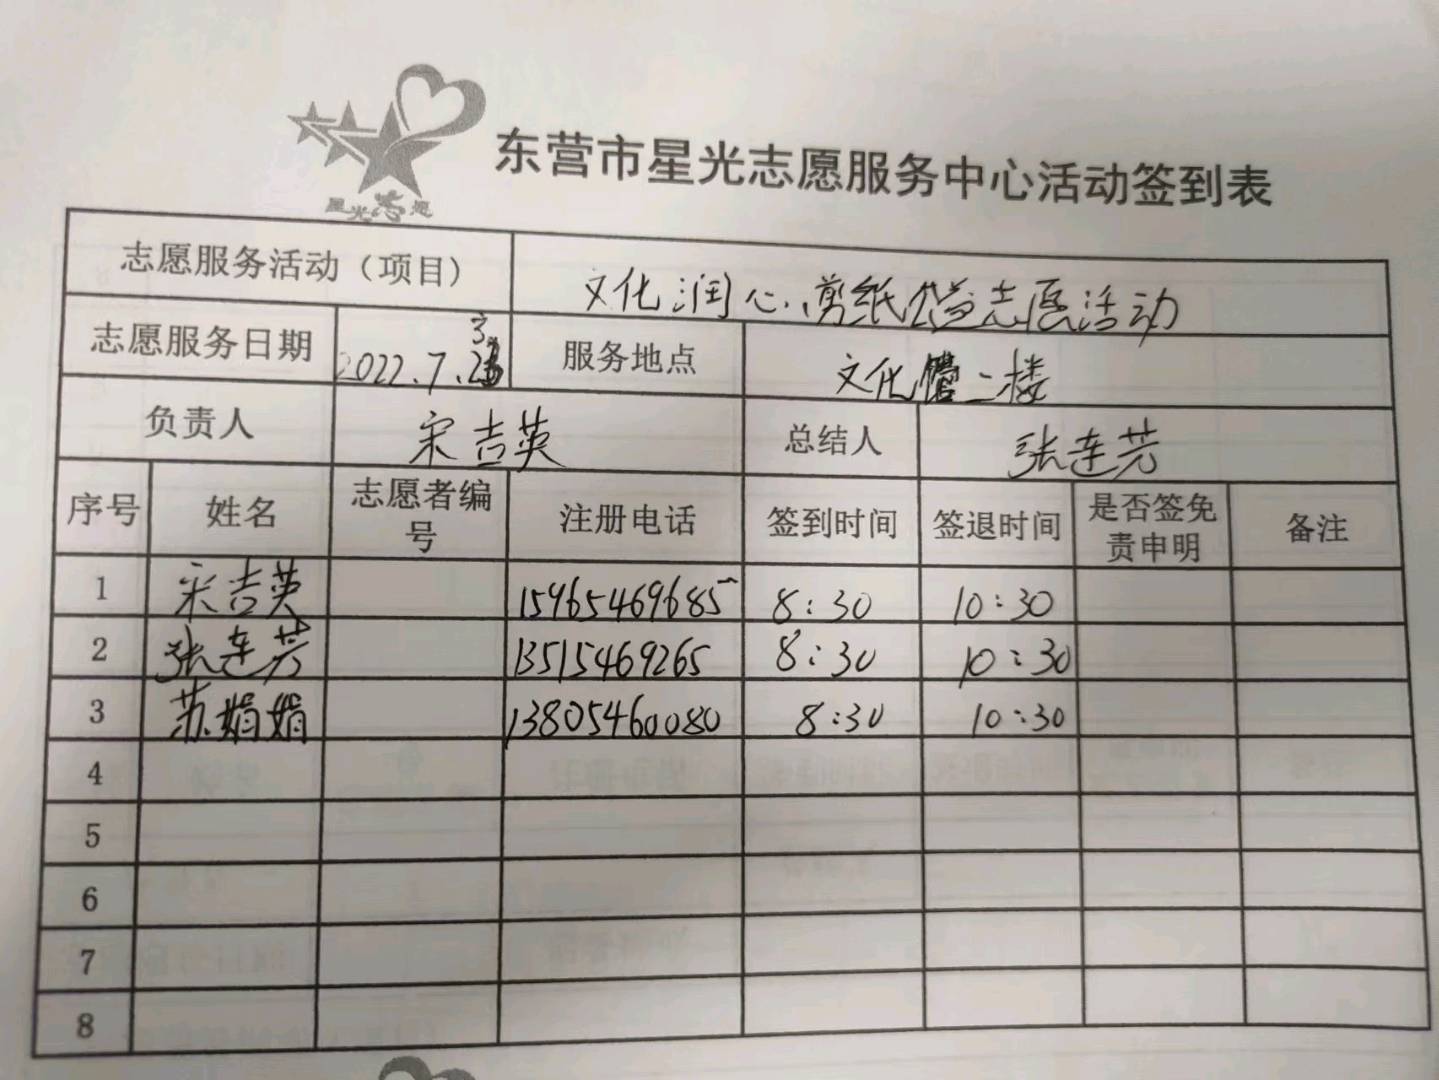 星光志愿
东营市星光志愿服务中心活动签到表
志愿服务活动（项目） 文化润心，剪纸公益志愿活动
志愿服务日期 2022.7.23 服务地点 文化馆二楼
负责人 宋吉英 总结人 张连芳
序号 姓名 志愿者编号 注册电话 签到时间 签退时间 是否签免责申明 备注
1 宋吉英 15965469685 8:30 10:30
2 张连芳 13515469265 8:30 10:30
3 苏娟娟 13805460080 8:30 10:30
4
5
6
7
8